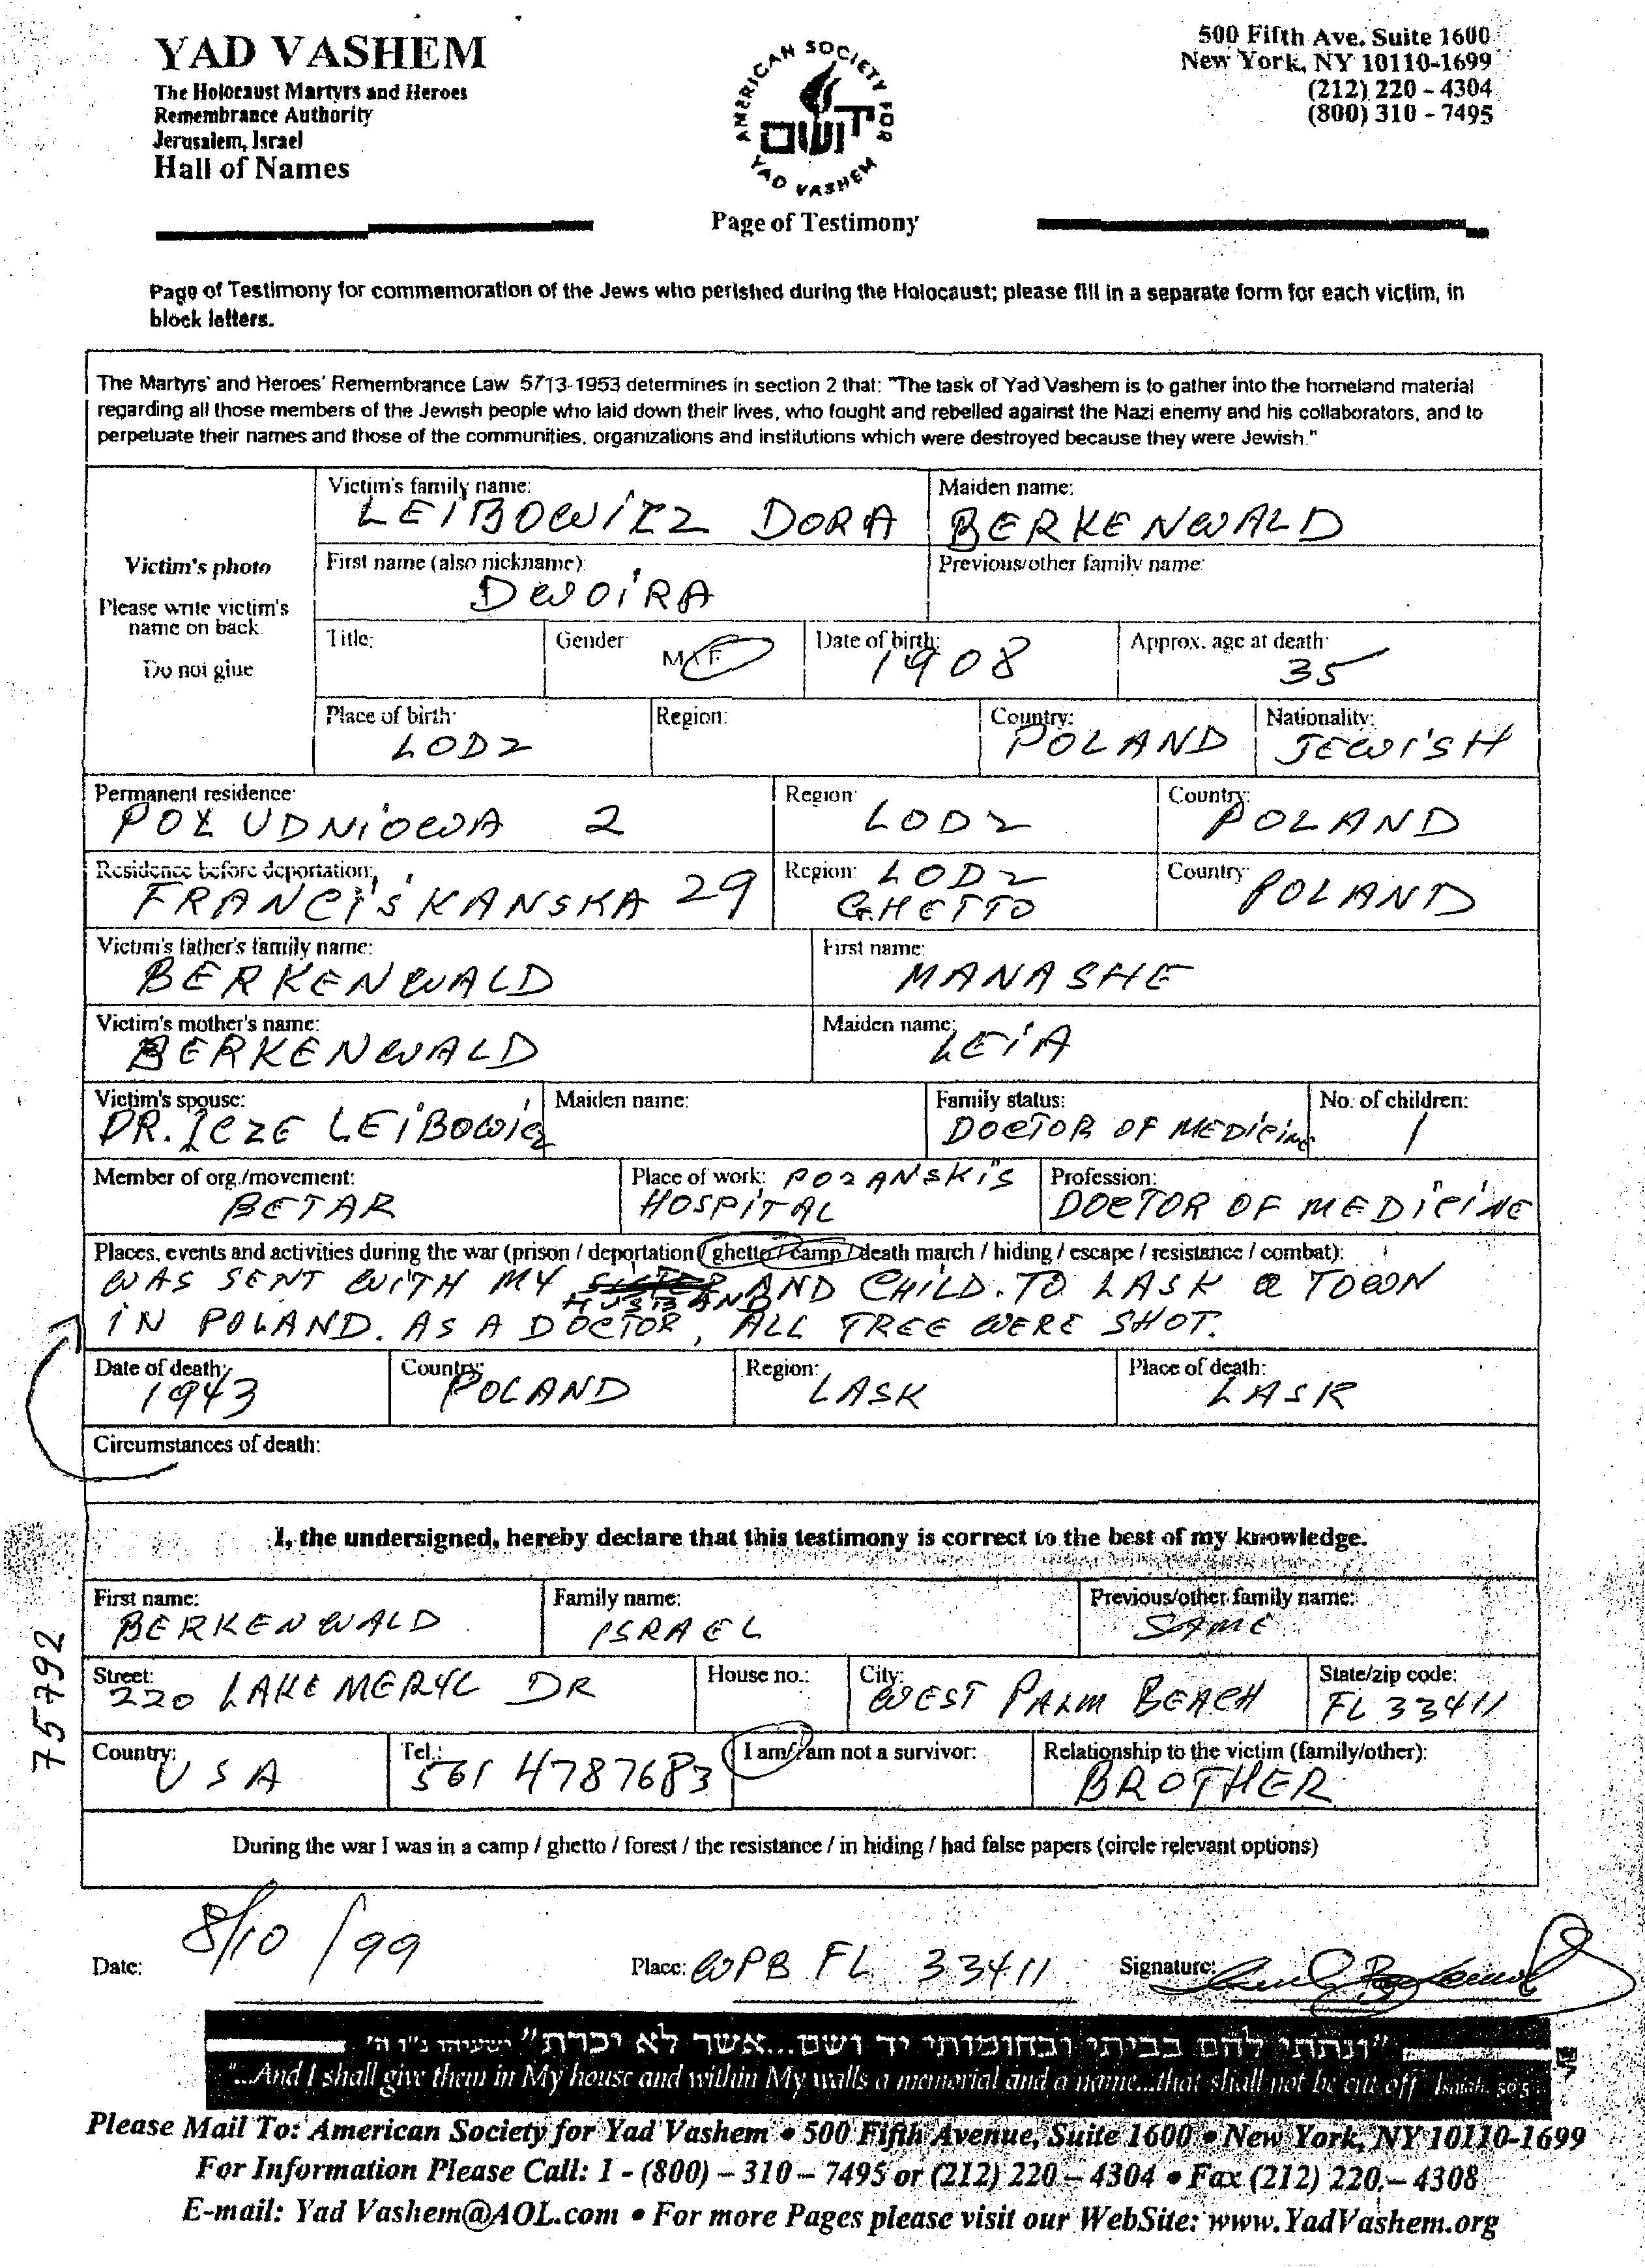 YAD VASHEM
The Holocaust Martyrs and Heroes
Remembrance Authority
Jerusalem, Israel
Hall of Names
AMERICAN SOCIETY FOR
יד ושם
YAD VASHEM
Page of Testimony
500 Fifth Ave. Suite 1600
New York, NY 10110-1699
(212) 220 - 4304
(800) 310 - 7495
Page of Testimony for commemoration of the Jews who perished during the Holocaust; please fill in a separate form for each victim, in
block letters.
The Martyrs' and Heroes' Remembrance Law 5713-1953 determines in section 2 that: "The task of Yad Vashem is to gather into the homeland material
regarding all those members of the Jewish people who laid down their lives, who fought and rebelled against the Nazi enemy and his collaborators, and to
perpetuate their names and those of the communities, organizations and institutions which were destroyed because they were Jewish."
Victim's photo
Please write victim's
name on back
Do not glue
Victim's family name: Maiden name:
LEIBOWICZ DORA BERKENWALD
First name (also nickname): Previous/other family name:
DWOIRA
Title: Gender M/F Date of birth: Approx. age at death:
1908 35
Place of birth: Region: Country: Nationality:
LODZ POLAND JEWISH
Permanent residence: Region: Country:
POŁUDNIOWA 2 LODZ POLAND
Residence before deportation: Region: LODZ Country:
FRANCISKANSKA 29 GHETTO POLAND
Victim's father's family name: First name:
BERKENWALD MANASHE
Victim's mother's name: Maiden name:
BERKENWALD LEIA
Victim's spouse: Maiden name: Family status: No. of children:
DR. LEIBOWICZ DOCTOR OF MEDICINE 1
Member of org./movement: Place of work: POZANSKIS Profession:
BETAR HOSPITAL DOCTOR OF MEDICINE
Places, events and activities during the war (prison / deportation / ghetto / camp / death march / hiding / escape / resistance / combat):
WAS SENT WITH MY HUSBAND AND CHILD. TO LASK a TOWN
IN POLAND. AS A DOCTOR, ALL TREE WERE SHOT.
Date of death: Country: Region: Place of death:
1943 POLAND LASK LASK
Circumstances of death:
I, the undersigned, hereby declare that this testimony is correct to the best of my knowledge.
First name: Family name: Previous/other family name:
BERKENWALD ISRAEL SAME
Street: House no.: City: State/zip code:
220 LAKE MERYL DR WEST PALM BEACH FL 33411
Country: Tel.: I am/I am not a survivor: Relationship to the victim (family/other):
USA 561 4787683 BROTHER
During the war I was in a camp / ghetto / forest / the resistance / in hiding / had false papers (circle relevant options)
75792
Date: 8/10/99 Place: WPB FL 33411 Signature:
"ונתתי להם בביתי ובחומותי יד ושם...אשר לא יכרת" ישעיהו נ"ו ה'
"...And I shall give them in My house and within My walls a memorial and a name...that shall not be cut off" Isaiah, 56:5
Please Mail To: American Society for Yad Vashem • 500 Fifth Avenue, Suite 1600 • New York, NY 10110-1699
For Information Please Call: 1 - (800) – 310 – 7495 or (212) 220 – 4304 • Fax (212) 220 – 4308
E-mail: Yad Vashem@AOL.com • For more Pages please visit our WebSite: www.YadVashem.org